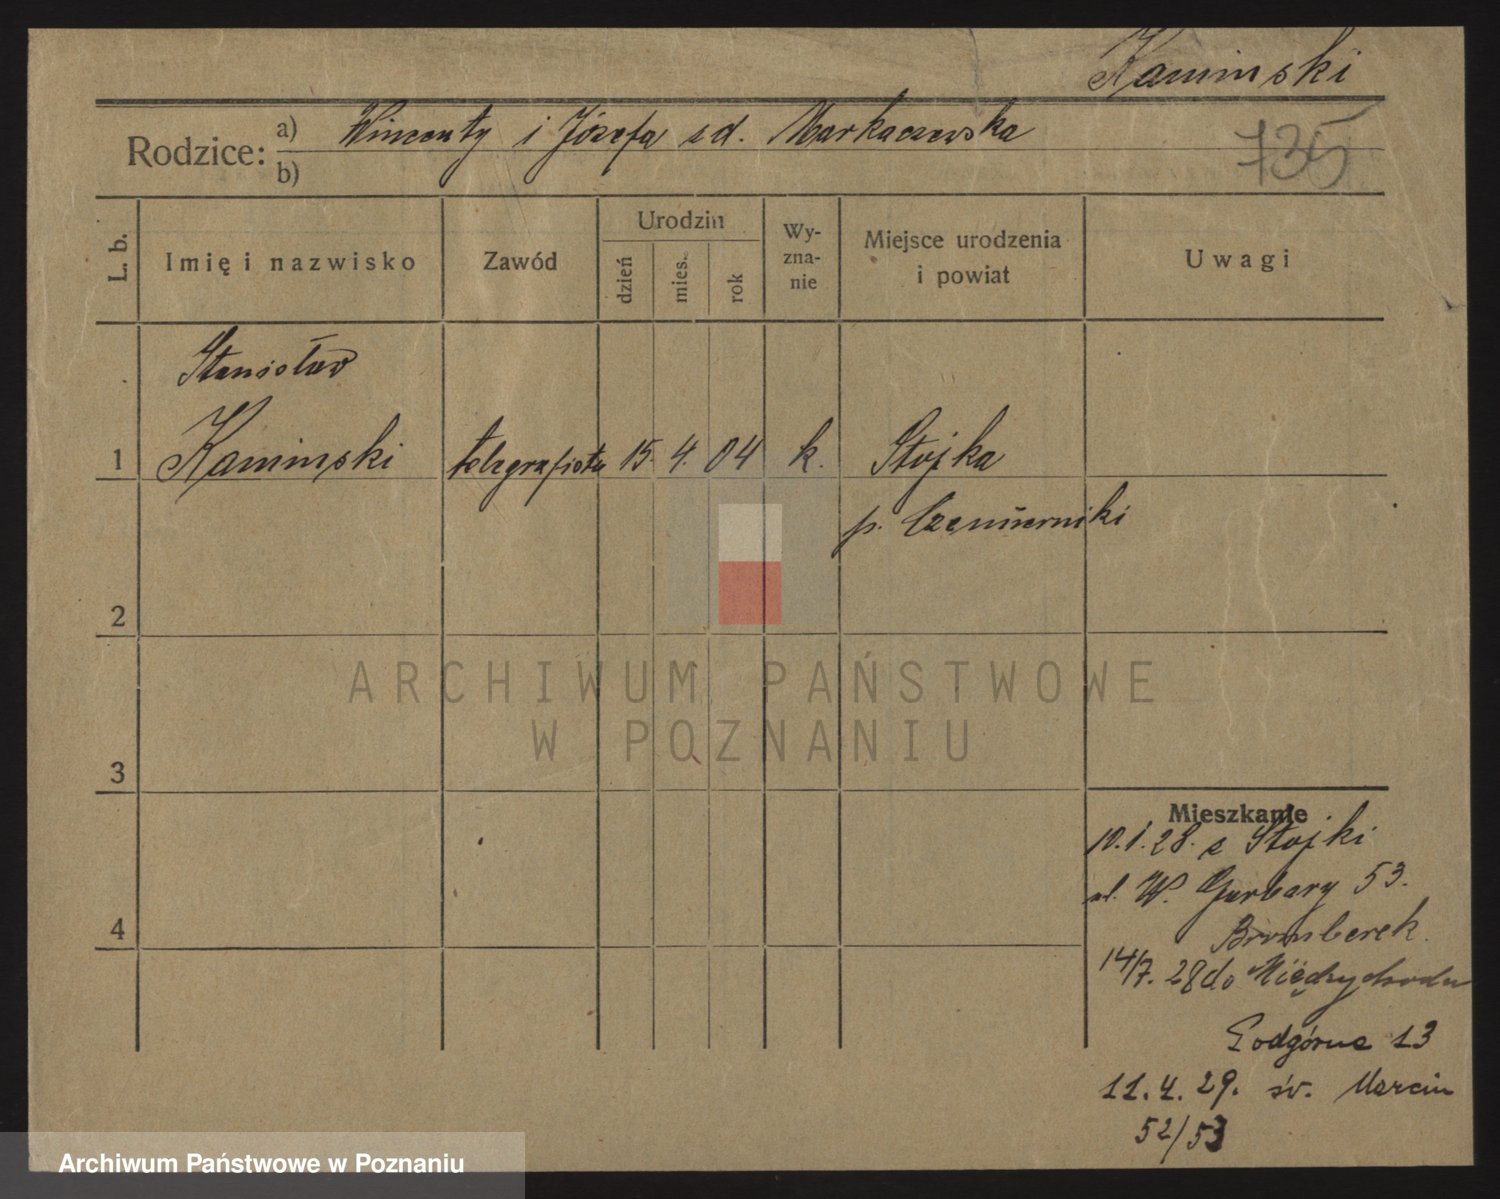 Kaminski
Rodzice: a) Wincenty i Józefa z d. Markaczewska
b)
735
L. b.
Imię i nazwisko
Zawód
Urodzin
dzień
mies.
rok
Wy-
zna-
nie
Miejsce urodzenia
i powiat
Uwagi
Stanisław
1 Kaminski telegrafista 15. 4. 04 k. Stojka
p. Czemierniki
2
ARCHIWUM PAŃSTWOWE
W POZNANIU
3
Mieszkanie
10.1.28. z Stojki
ul. W. Garbary 53.
Bromberek
4
14/7. 28 do Międzychodu
Podgórna 13
11.4.29. św. Marcin
52/53
Archiwum Państwowe w Poznaniu